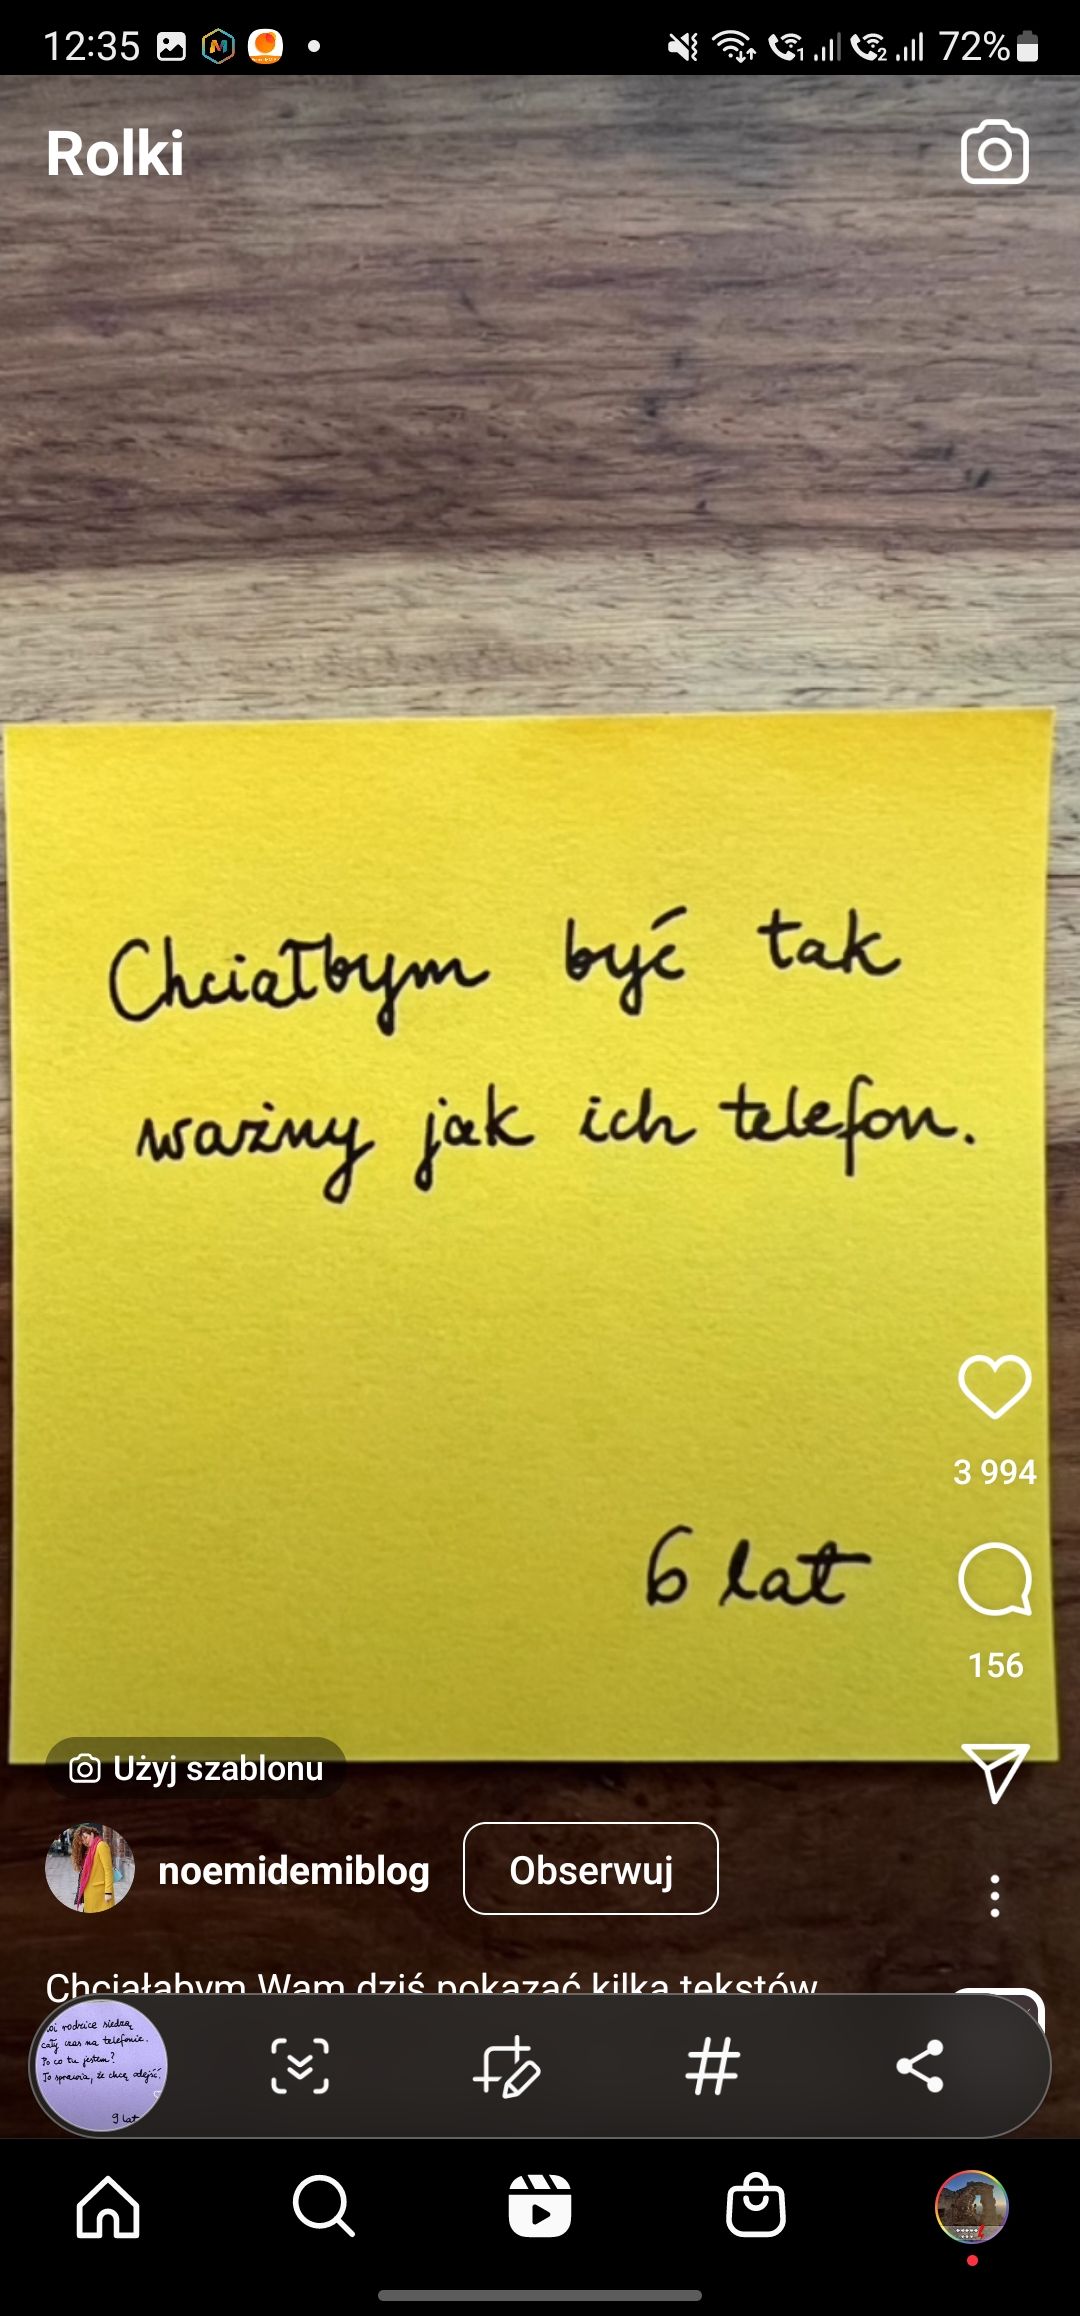 12:35
72%
Rolki
Chciałbym być tak
ważny jak ich telefon.
6 lat
3 994
156
Użyj szablonu
noemidemiblog
Obserwuj
Chciałabym Wam dziś pokazać kilka tekstów
oi rodzice siedzą
cały czas na telefonie.
Po co tu jestem?
To sprawia, że chcę odejść.
9 lat